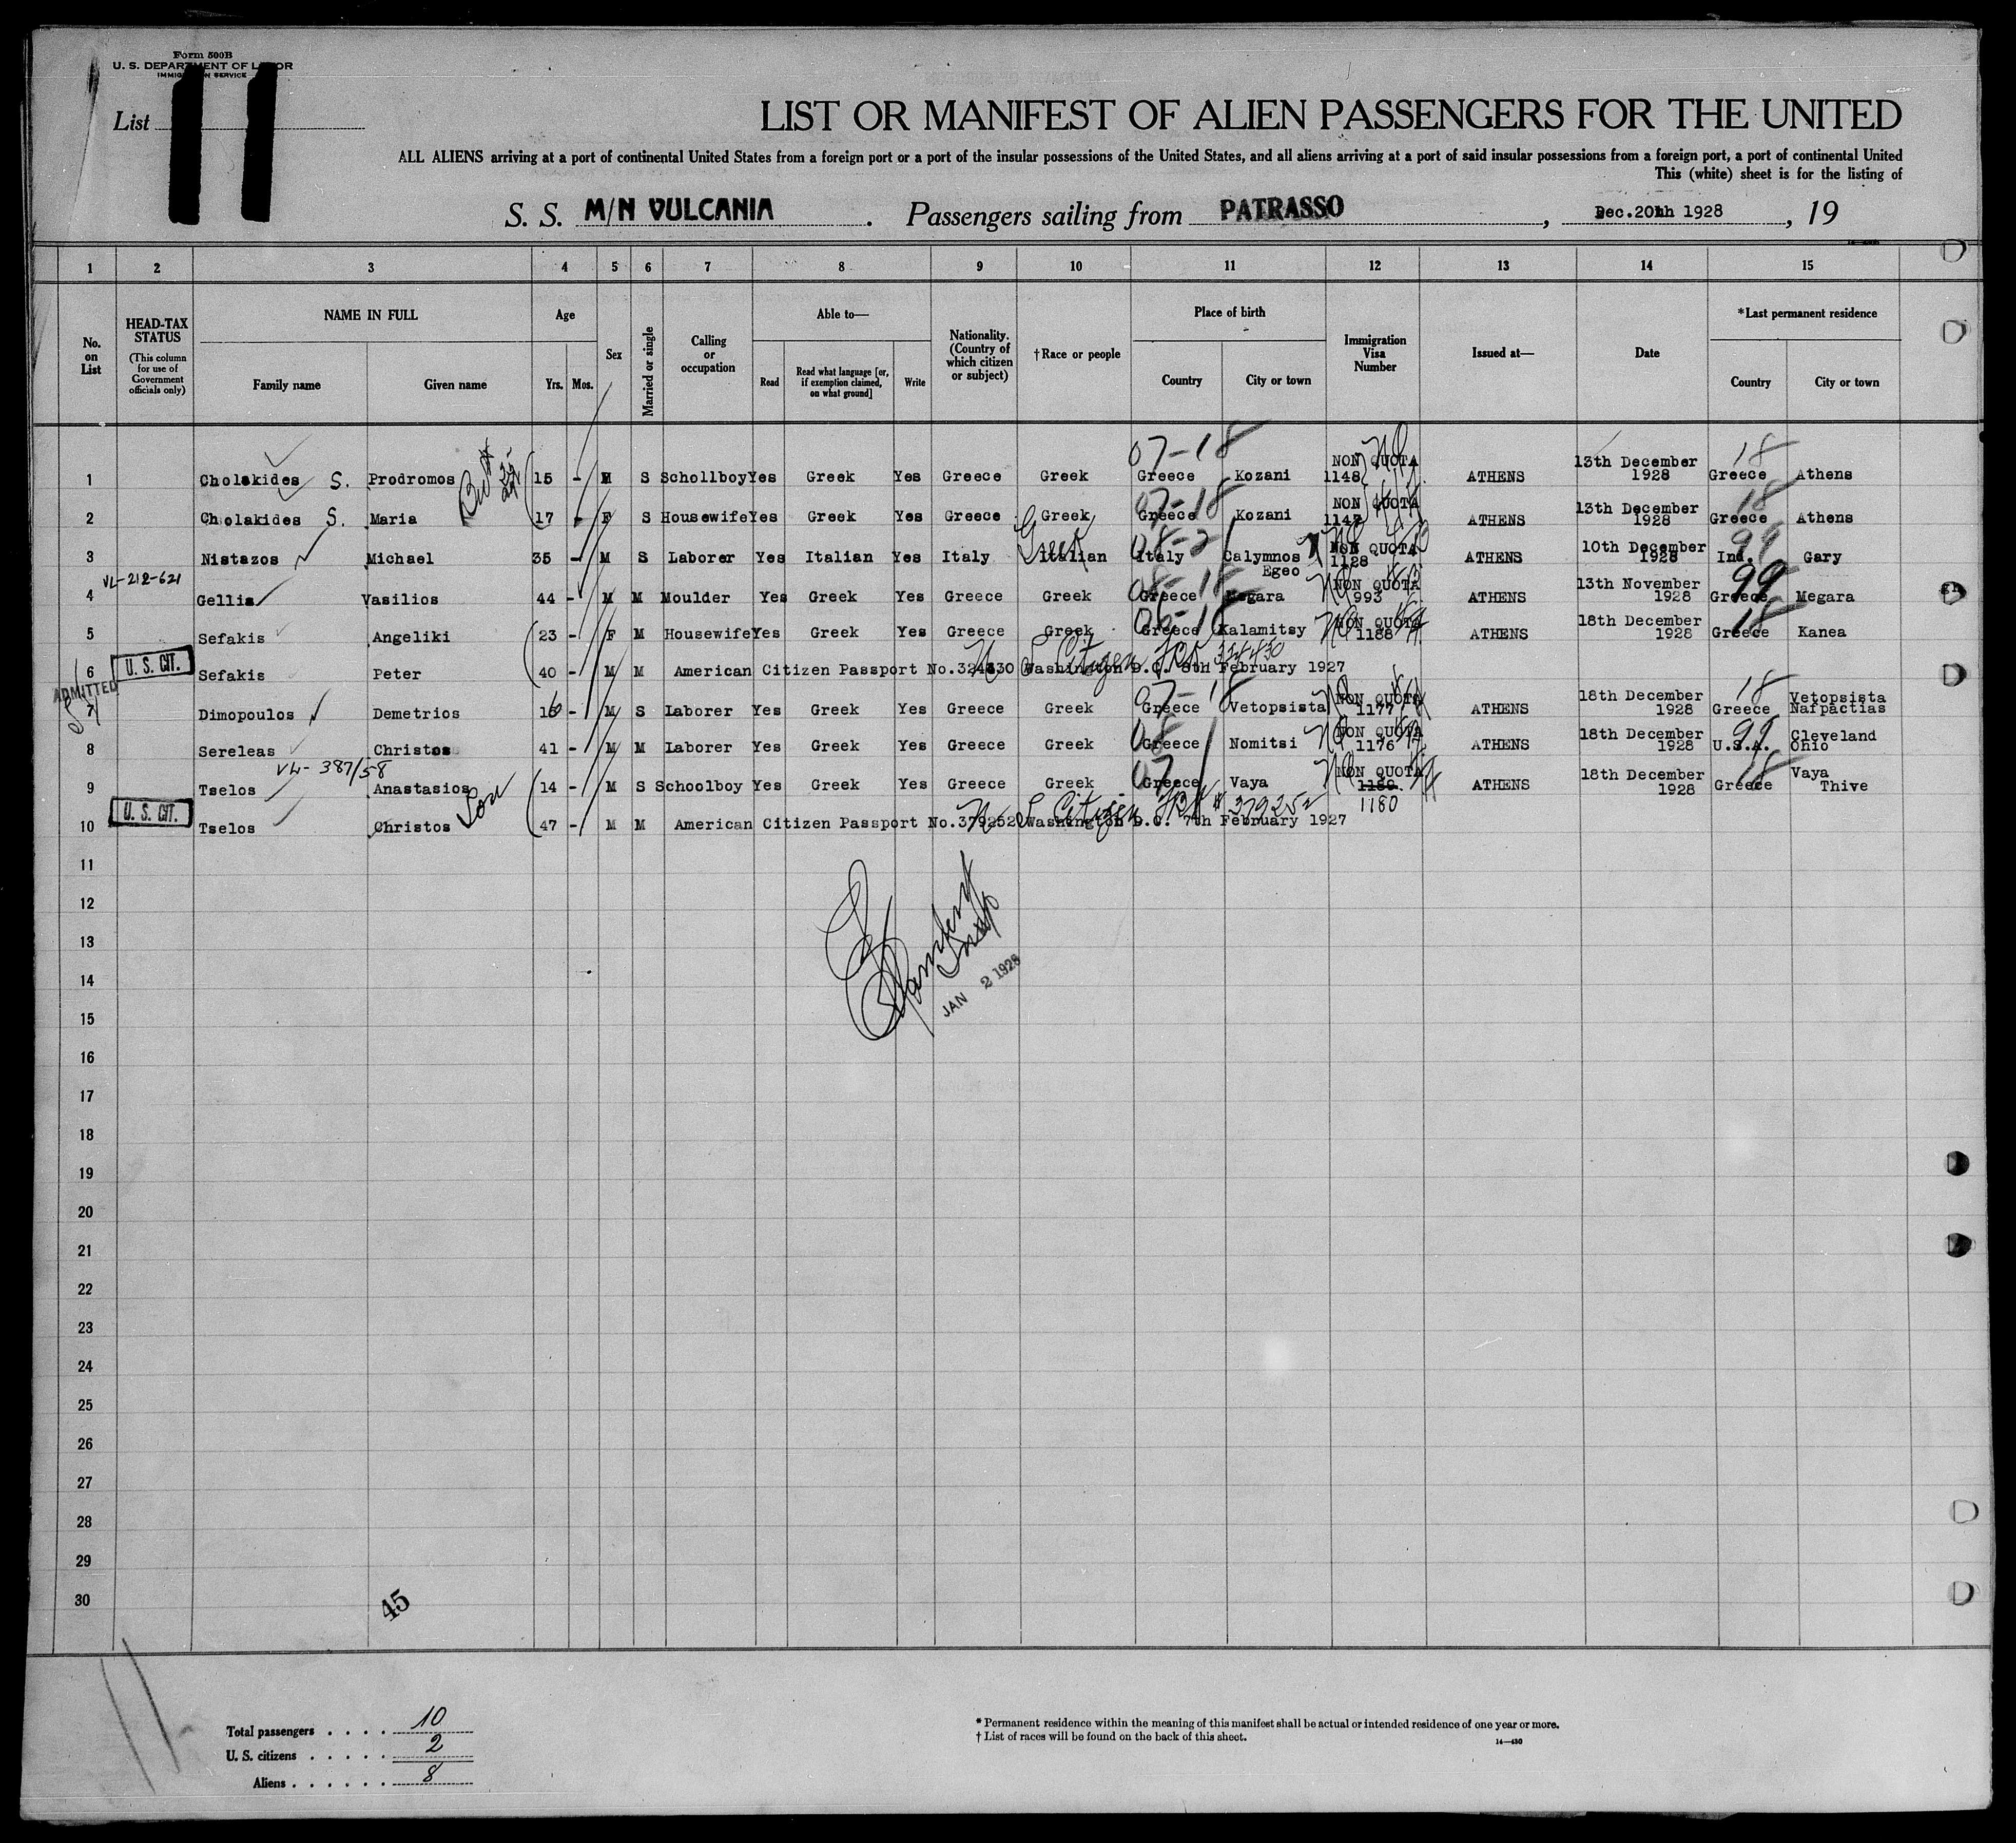 Form 500B
U. S. DEPARTMENT OF LABOR
IMMIGRATION SERVICE
List 11
LIST OR MANIFEST OF ALIEN PASSENGERS FOR THE UNITED
ALL ALIENS arriving at a port of continental United States from a foreign port or a port of the insular possessions of the United States, and all aliens arriving at a port of said insular possessions from a foreign port, a port of continental United
This (white) sheet is for the listing of
S. S. M/N VULCANIA. Passengers sailing from PATRASSO, Dec. 20th 1928, 19
1 2 3 4 5 6 7 8 9 10 11 12 13 14 15
No. on List
HEAD-TAX STATUS (This column for use of Government officials only)
NAME IN FULL
Family name Given name
Age
Yrs. Mos.
Sex
Married or single
Calling or occupation
Able to—
Read Read what language [or, if exemption claimed, on what ground] Write
Nationality. (Country of which citizen or subject)
†Race or people
Place of birth
Country City or town
Immigration Visa Number
Issued at—
Date
*Last permanent residence
Country City or town
07-18 18
1 Cholakides S. Prodromos 15 - M S Schollboy Yes Greek Yes Greece Greek Greece Kozani NON QUOTA 1148 ATHENS 13th December 1928 Greece Athens
07-18 18
2 Cholakides S. Maria 17 - F S Housewife Yes Greek Yes Greece Greek Greece Kozani NON QUOTA 1147 ATHENS 13th December 1928 Greece Athens
Greek 99
3 Nistazos Michael 35 - M S Laborer Yes Italian Yes Italy Italian Italy Calymnos Egeo NON QUOTA 1128 ATHENS 10th December 1928 Ind. Gary
VL-212-621 08-18 99
4 Gellis Vasilios 44 - M M Moulder Yes Greek Yes Greece Greek Greece Megara NON QUOTA 993 ATHENS 13th November 1928 Greece Megara
06-18 18
5 Sefakis Angeliki 23 - F M Housewife Yes Greek Yes Greece Greek Greece Kalamitsy NON QUOTA 1188 ATHENS 18th December 1928 Greece Kanea
U. S. CIT.
U S Citizen 324430
6 Sefakis Peter 40 - M M American Citizen Passport No. 324430 Washington D.C. 8th February 1927
ADMITTED
07-18 18
7 Dimopoulos Demetrios 16 - M S Laborer Yes Greek Yes Greece Greek Greece Vetopsista NON QUOTA 1177 ATHENS 18th December 1928 Greece Vetopsista Nafpactias
08 99
8 Sereleas Christos 41 - M M Laborer Yes Greek Yes Greece Greek Greece Nomitsi NON QUOTA 1176 ATHENS 18th December 1928 U.S.A. Cleveland Ohio
VL-387/58 07 18
9 Tselos Anastasios Son 14 - M S Schoolboy Yes Greek Yes Greece Greek Greece Vaya NON QUOTA 1189 1180 ATHENS 18th December 1928 Greece Vaya Thive
U. S. CIT.
U S Citizen # 379252
10 Tselos Christos 47 - M M American Citizen Passport No. 379252 Washington D.C. 7th February 1927
11
12
13
Insp
14
JAN 2 1928
15
16
17
18
19
20
21
22
23
24
25
26
27
28
29
30
45
11
Total passengers . . . . 10
U. S. citizens . . . . . 2
Aliens . . . . . . 8
* Permanent residence within the meaning of this manifest shall be actual or intended residence of one year or more.
† List of races will be found on the back of this sheet.
14—430